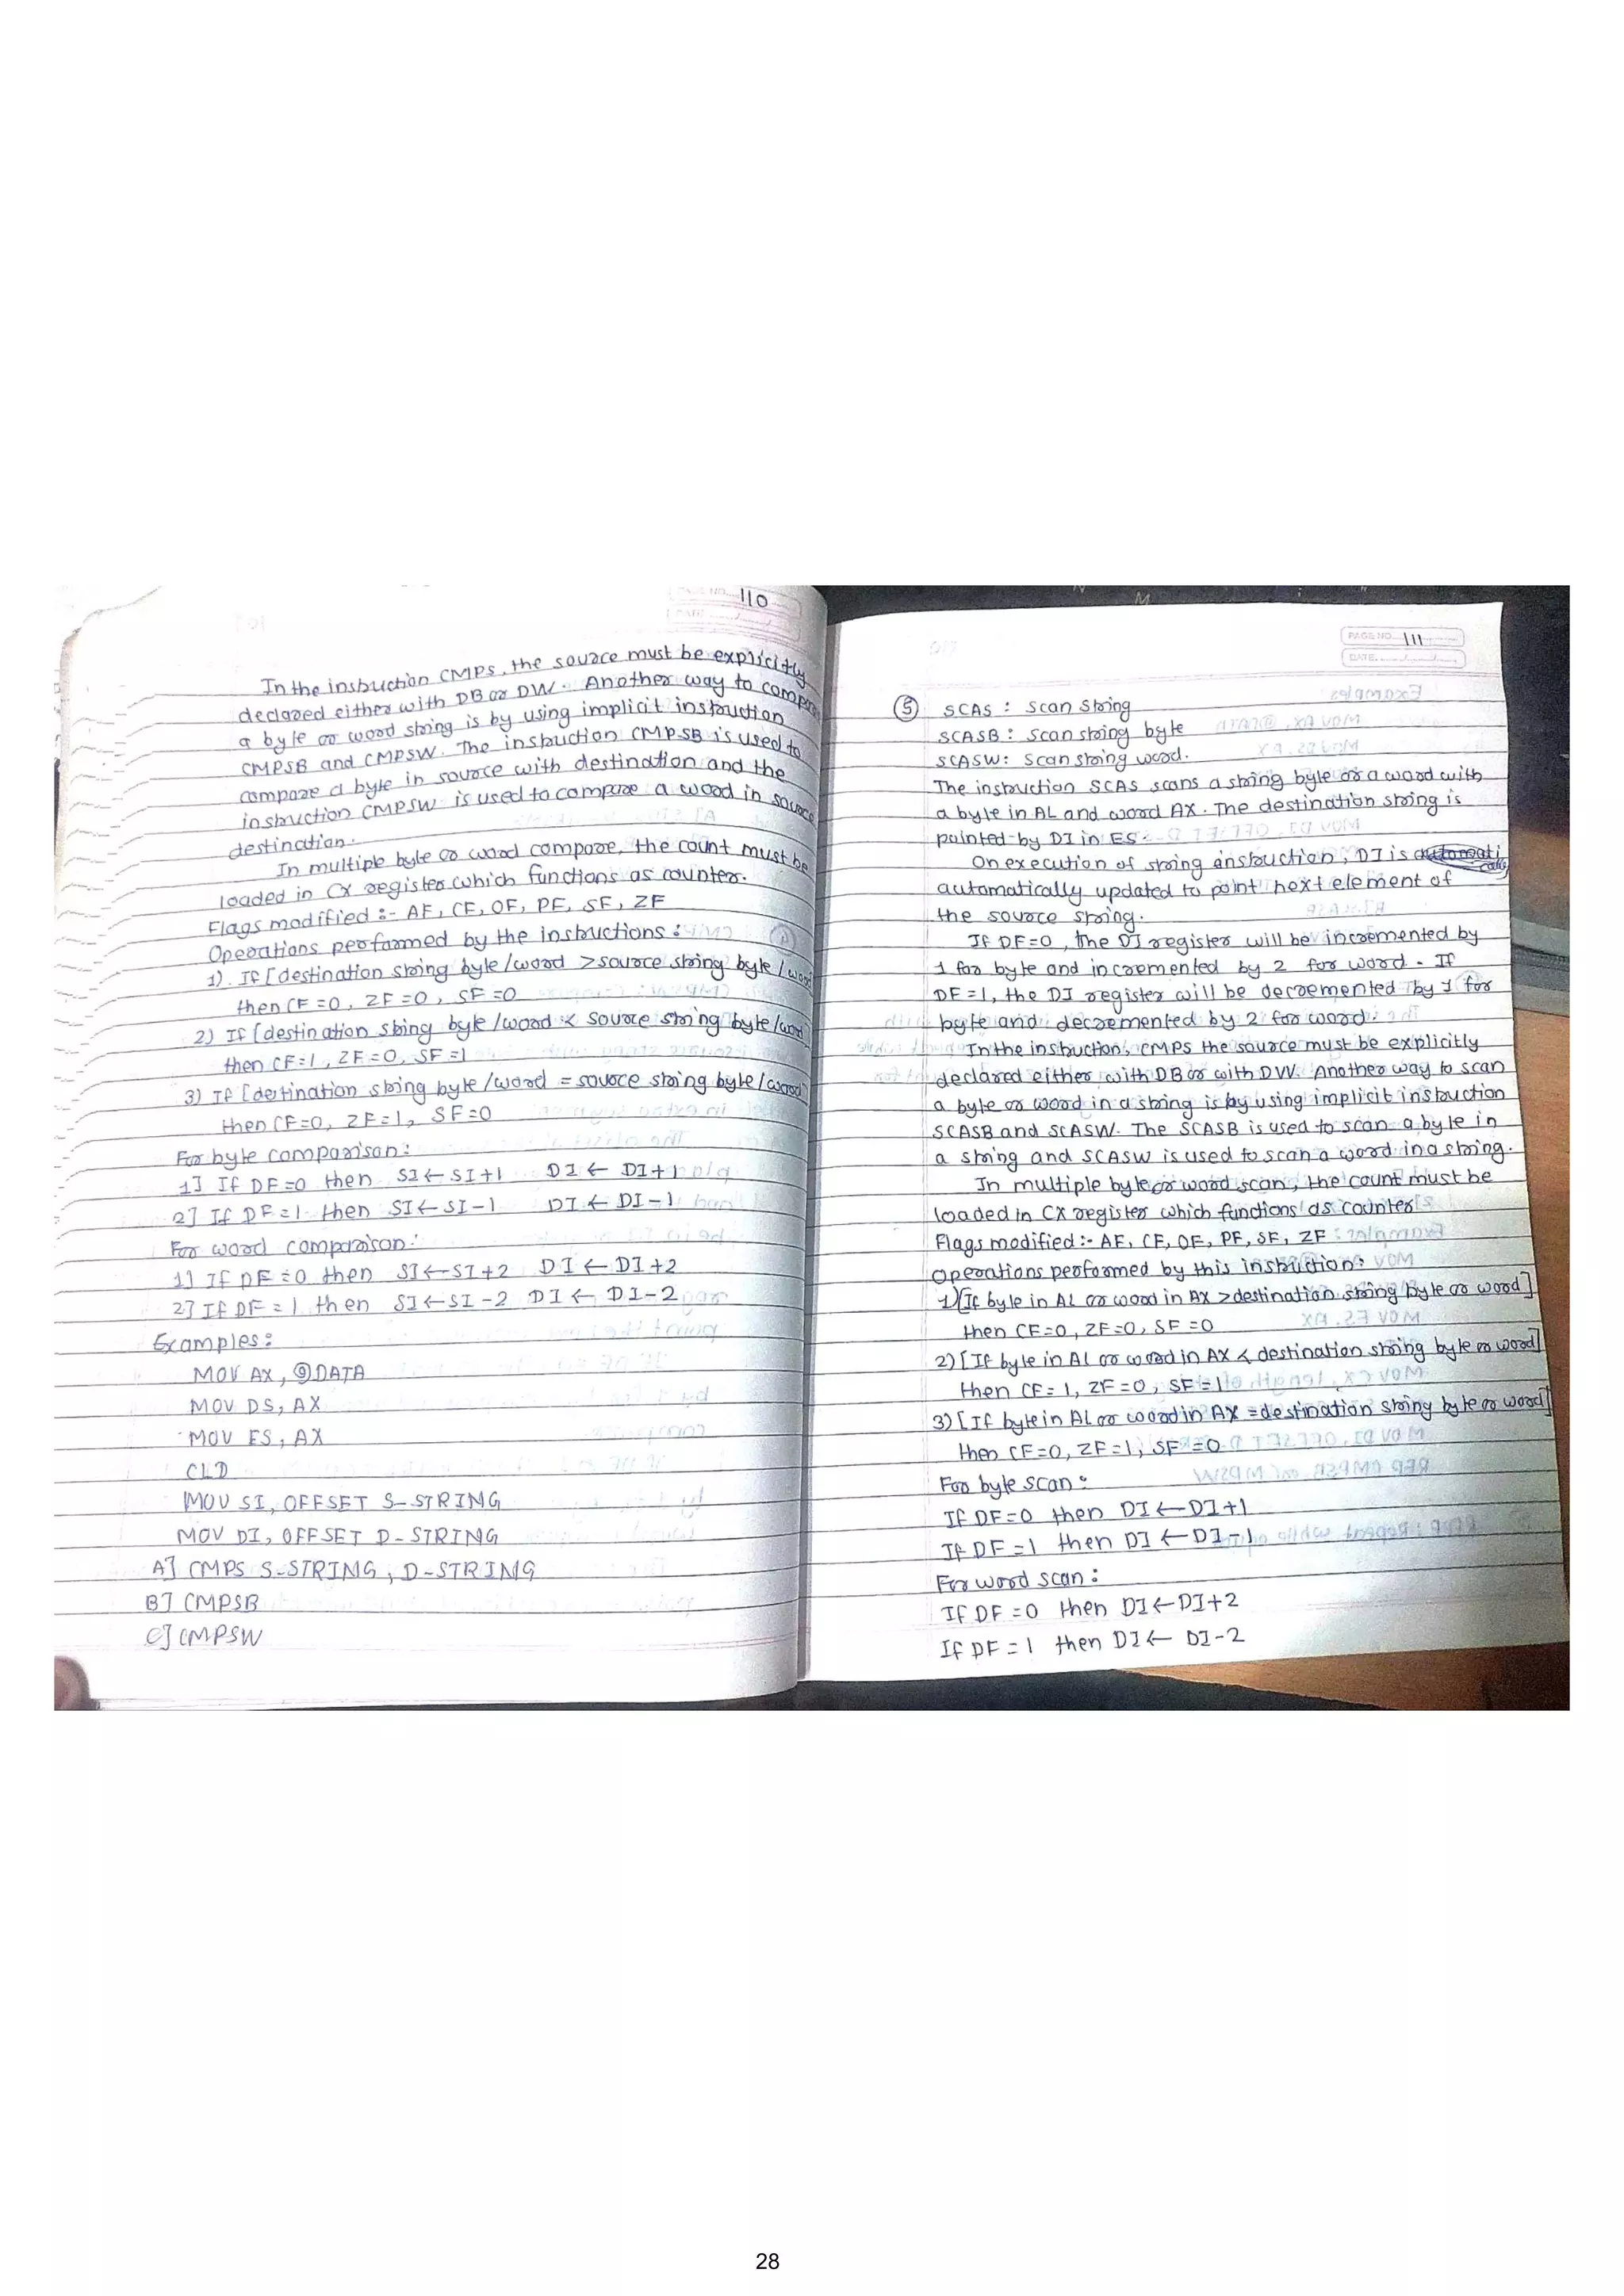 PAGE NO. 110
DATE
In the instruction CMPS, the source must be explicitly
declared either with DB or DW. Another way to compare
a byte or word string is by using implicit instruction
CMPSB and CMPSW. The instruction CMPSB is used to
compare a byte in source with destination and the
instruction CMPSW is used to compare a word in source
destination.
In multiple byte or word compare, the count must be
loaded in CX register which functions as counter.
Flags modified :- AF, CF, OF, PF, SF, ZF
Operations performed by the instructions :
1). If [destination string byte/word > source string byte/word
then CF=0, ZF=0, SF=0
2) If [destination string byte/word < source string byte/word
then CF=1, ZF=0, SF=1
3) If [destination string byte/word = source string byte/word]
then CF=0, ZF=1, SF=0
For byte comparison:
1] If DF=0 then SI ← SI+1 DI ← DI+1
2] If DF=1 then SI ← SI-1 DI ← DI-1
For word comparison:
1] If DF=0 then SI ← SI+2 DI ← DI+2
2] If DF=1 then SI ← SI-2 DI ← DI-2
Examples:
MOV AX, @DATA
MOV DS, AX
MOV ES, AX
CLD
MOV SI, OFFSET S-STRING
MOV DI, OFFSET D-STRING
A] CMPS S-STRING, D-STRING
B] CMPSB
C] CMPSW
PAGE NO. 111
DATE.
5 SCAS : Scan String
SCASB : Scan string byte
SCASW : Scan string word.
The instruction SCAS scans a string byte or a word with
a byte in AL and word AX. The destination string is
pointed by DI in ES.
On execution of string instruction, DI is
automatically updated to point next element of
the source string.
If DF=0, the DI register will be incremented by
1 for byte and incremented by 2 for word. If
DF=1, the DI register will be decremented by 1 for
byte and decremented by 2 for word.
In the instruction, CMPS the source must be explicitly
declared either with DB or with DW. Another way to scan
a byte or word in a string is by using implicit instruction
SCASB and SCASW. The SCASB is used to scan a byte in
a string and SCASW is used to scan a word in a string.
In multiple byte or word scan, the count must be
loaded in CX register which functions as counter
Flags modified :- AF, CF, OF, PF, SF, ZF
Operations performed by this instruction:
1) [If byte in AL or word in AX > destination string byte or word]
then CF=0, ZF=0, SF=0
2) [If byte in AL or word in AX < destination string byte or word]
then CF=1, ZF=0, SF=1
3) [If byte in AL or word in AX = destination string byte or word]
then CF=0, ZF=1, SF=0
For byte scan:
If DF=0 then DI ← DI+1
If DF=1 then DI ← DI-1
For word scan:
If DF=0 then DI ← DI+2
If DF=1 then DI ← DI-2
28